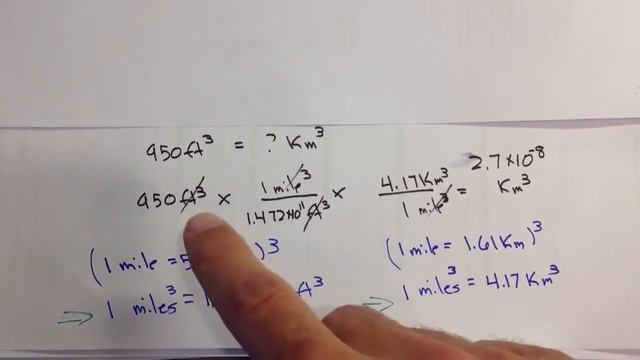 950 ft³ = ? Km³
950 ft³ x 1 mile³ / 1.472x10¹¹ ft³ x 4.17 Km³ / 1 mile³ = 2.7x10⁻⁸ Km³
(1 mile = 5 )³
1 miles³ = 1 ft³
(1 mile = 1.61 Km)³
1 miles³ = 4.17 Km³